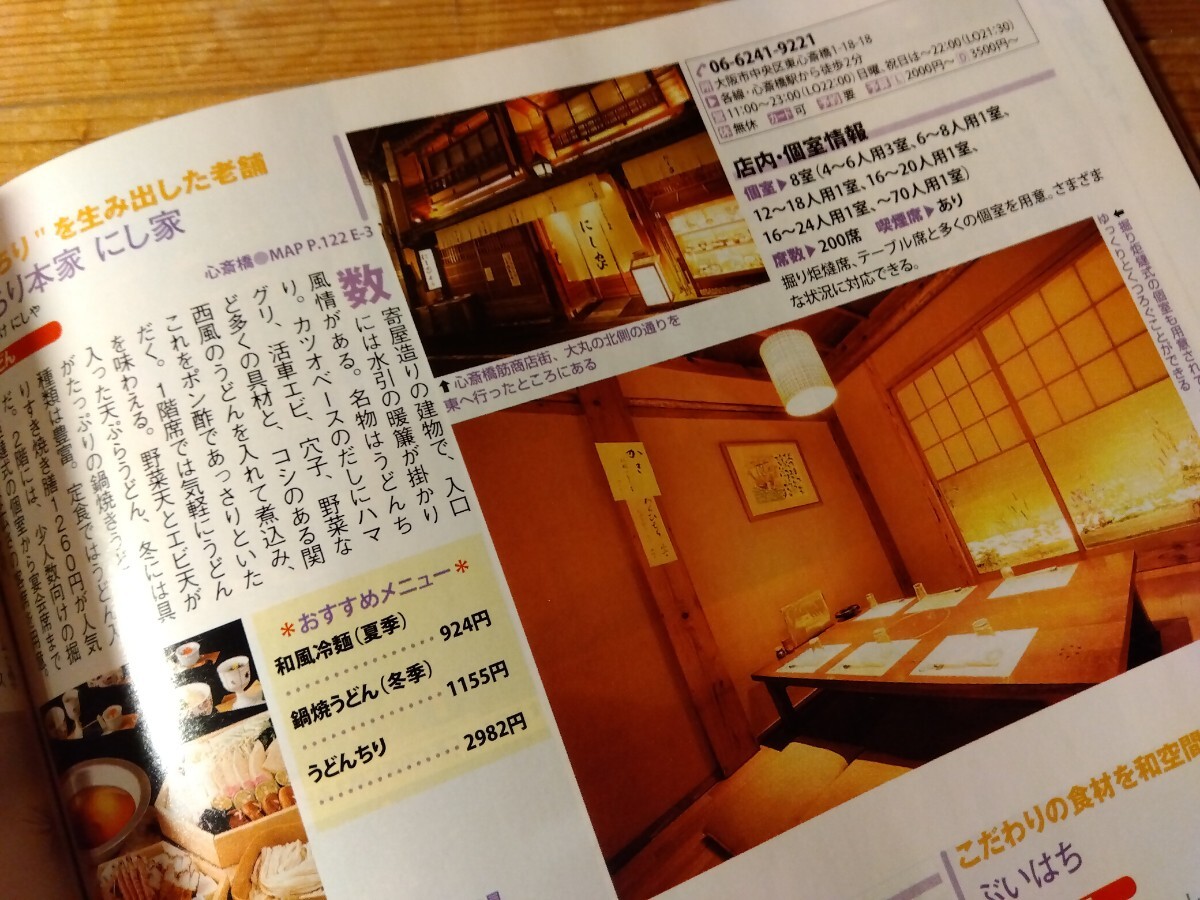 ちり"を生み出した老舗
り本家 にし家
け にしや
心斎橋●MAP P.122 E-3
数寄屋造りの建物で、入口
には水引の暖簾が掛かり
風情がある。名物はうどんち
り。カツオベースのだしにハマ
グリ、活車エビ、穴子、野菜な
ど多くの具材と、コシのある関
西風のうどんを入れて煮込み、
これをポン酢であっさりといた
だく。1階席では気軽にうどん
を味わえる。野菜天とエビ天が
入った天ぷらうどん、冬には具
がたっぷりの鍋焼きうど
種類は豊富。定食ではうどん入
りすき焼き膳1260円が人気
だ。2階には、少人数向けの掘
式の個室から宴会席まで
06-6241-9221
所 大阪市中央区東心斎橋1-18-18
各線・心斎橋駅から徒歩2分
営 11:00〜23:00(LO22:00) 日曜、祝日は〜22:00(LO21:30)
休 無休 カード 可 予約 要 予算 L 2000円〜 D 3500円〜
店内・個室情報
個室▶8室(4〜6人用3室、6〜8人用1室、
12〜18人用1室、16〜20人用1室、
16〜24人用1室、〜70人用1室)
席数▶200席 喫煙席▶あり
掘り炬燵席、テーブル席と多くの個室を用意。さまざま
な状況に対応できる。
にし家
⬆心斎橋筋商店街、大丸の北側の通りを
東へ行ったところにある
⬆掘り炬燵式の個室も用意されて
ゆっくりとくつろぐことができる
＊おすすめメニュー＊
和風冷麺(夏季) 924円
鍋焼うどん(冬季) 1155円
うどんちり 2982円
こだわりの食材を和空間
ぶいはち